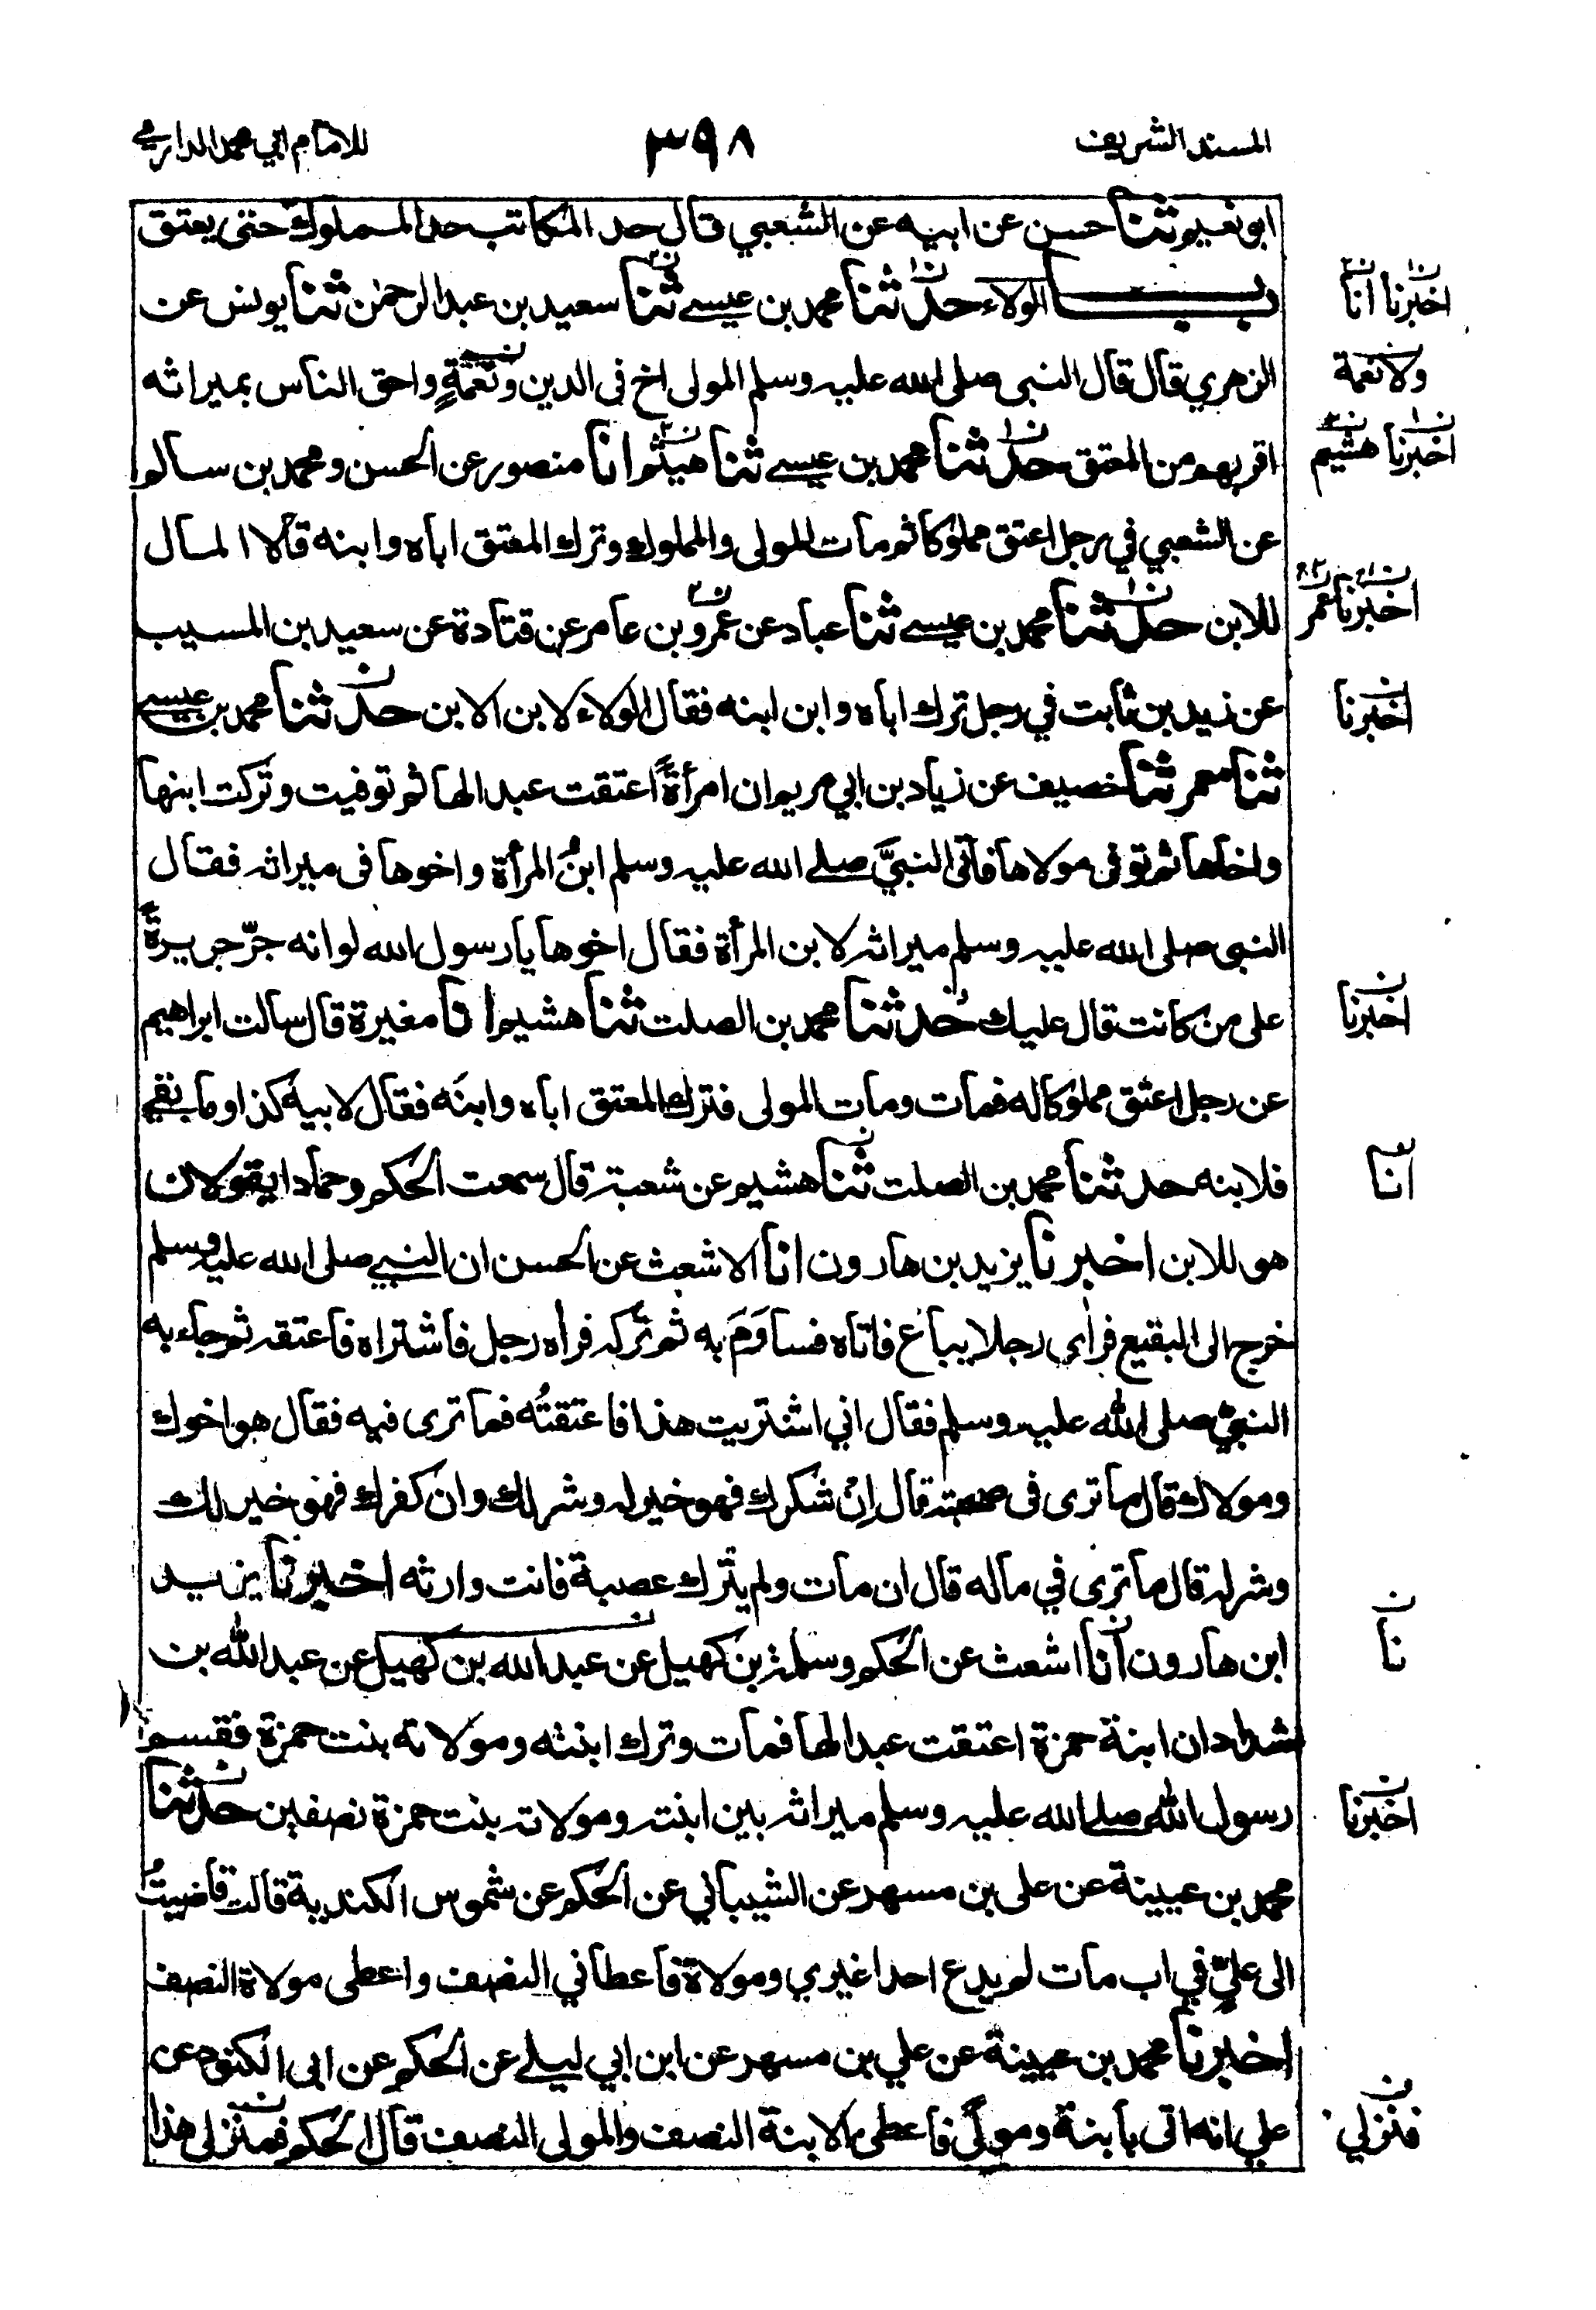 المسند الشريف ٣٩٨ للامام ابي محمد الدارمي
ابو نعيم ثنا حسن عن ابيه عن الشعبي قال حد المكاتب حد المملوك حتى يعتق
باب الولاء حدثنا محمد بن عيسى ثنا سعيد بن عبد الرحمن ثنا يونس عن
اخبرنا انا
الزهري قال قال النبي صلى الله عليه وسلم المولى اخ في الدين ونعمةٍ واحق الناس بميراثه
ولا نعمة
اقربهم من المعتق حدثنا محمد بن عيسى ثنا هيثم انا منصور عن الحسن ومحمد بن سالم
اخبرنا هشيم
عن الشعبي في رجل اعتق مملوكا ثم مات المولى والمملوك وترك المعتق اباه وابنه قالا المال
للابن حدثنا محمد بن عيسى ثنا عباد عن عمرو بن عامر عن قتادة عن سعيد بن المسيب
اخبرنا عمر
عن زيد بن ثابت في رجل ترك اباه وابن ابنه فقال الولاء لابن الابن حدثنا محمد بن عيسى
اخبرنا
ثنا معمر ثنا خصيف عن زياد بن ابي مريم ان امرأةً اعتقت عبد الها ثم توفيت وتركت ابنها
واخاها ثم توفى مولاها فاتى النبيَّ صلى الله عليه وسلم ابنُ المرأة واخوها في ميراثه فقال
النبي صلى الله عليه وسلم ميراثه لابن المرأة فقال اخوها يا رسول الله لو انه جرّ جريرةً
على من كانت قال عليك حدثنا محمد بن الصلت ثنا هشيم انا مغيرة قال سالت ابراهيم
اخبرنا
عن رجل اعتق مملوكا له فمات ومات المولى فترك المعتق اباه وابنه فقال لابيه كذا وما بقي
فلابنه حدثنا محمد بن الصلت ثنا هشيم عن شعبة قال سمعت الحكم وحمادا يقولان
انا
هو للابن اخبرنا يزيد بن هارون انا الاشعث عن الحسن ان النبي صلى الله عليه وسلم
خرج الى البقيع فرأى رجلا يباع فاتاه فساوَمَ به ثم تركه فرأه رجل فاشتراه فاعتقه ثم جاء به
النبيَّ صلى الله عليه وسلم فقال اني اشتريت هذا فاعتقتُه فما ترى فيه فقال هو اخوك
ومولاك قال ما ترى في صحبته قال اِنْ شكرك فهو خير له وشر لك وان كفرك فهو خير لك
وشر له قال ما ترى في ماله قال ان مات ولم يترك عصبة فانت وارثه اخبرنا يزيد
ابن هارون انا اشعث عن الحكم وسلمة بن كهيل عن عبد الله بن كهيل عن عبد الله بن
نا
شداد ان ابنة حمزة اعتقت عبد الها فمات وترك ابنته ومولاته بنت حمزة فقسم
رسول الله صلى الله عليه وسلم ميراثه بين ابنته ومولاته بنت حمزة نصفين حدثنا
اخبرنا
محمد بن عيينة عن على بن مسهر عن الشيباني عن الحكم عن شموس الكندية قالت قاضيتُ
الى عليّ في اب مات لم يدع احدا غيري ومولاة فاعطاني النصف واعطى مولاة النصف
اخبرنا محمد بن عيينة عن علي بن مسهر عن ابن ابي ليلى عن الحكم عن ابى الكنود عن
علي انه اتى بابنة ومولًى فاعطى الابنة النصف والمولى النصف قال الحكم فمنزلى هذا
فنزلي